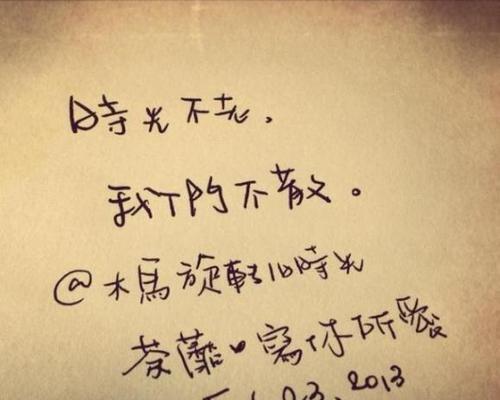 時光不老,
我們不散。
@木馬旋轉旧時光
荼蘼·寫你所愛
03. 2013